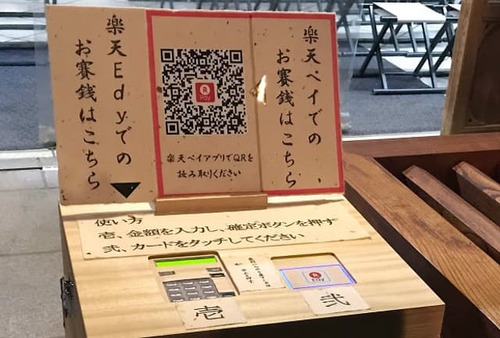 楽天Edyでの
お賽銭はこちら
Pay
楽天ペイアプリでQRを
読み取りください
楽天ペイでの
お賽銭はこちら
使い方
壱、金額を入力し、確定ボタンを押す
弐、カードをタッチしてください
壱
Pay
弐